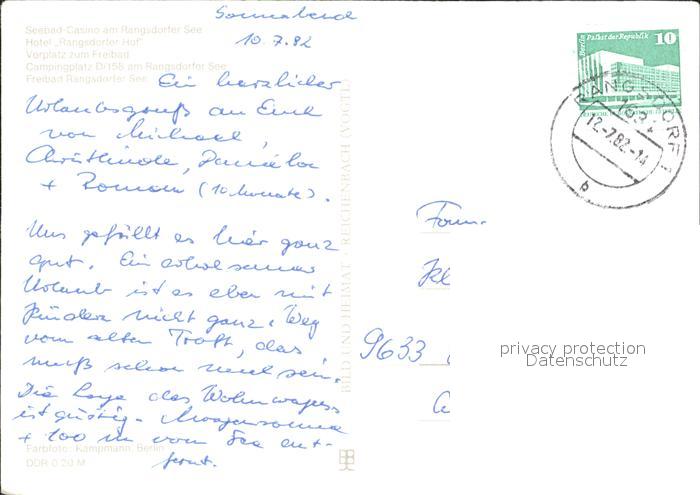 Sonnabend
10.7.82
Seebad-Casino am Rangsdorfer See
Hotel "Rangsdorfer Hof"
Vorplatz zum Freibad
Campingplatz D/158 am Rangsdorfer See
Freibad Rangsdorfer See
Ein herzlicher
Urlaubsgruß an Euch
von Michael,
Christhilde, Daniela
+ Roman (10 Monate).
Uns gefällt es hier ganz
gut. Ein erholsamer
Urlaub ist es aber mit
Kindern nicht ganz. Weg
vom alten Trott, das
muß schon mal sein.
Die Lage des Wohnwagens
ist günstig - Morgensonne
+ 100 m vom See ent-
fernt.
Farbfoto: Kampmann, Berlin
DDR 0,20 M
BILD UND HEIMAT · REICHENBACH (VOGTL)
Berlin Palast der Republik 10
RANGSDORF 1
1634
12.-7.82-14
b
Fam.
Kl
9633
privacy protection
Datenschutz